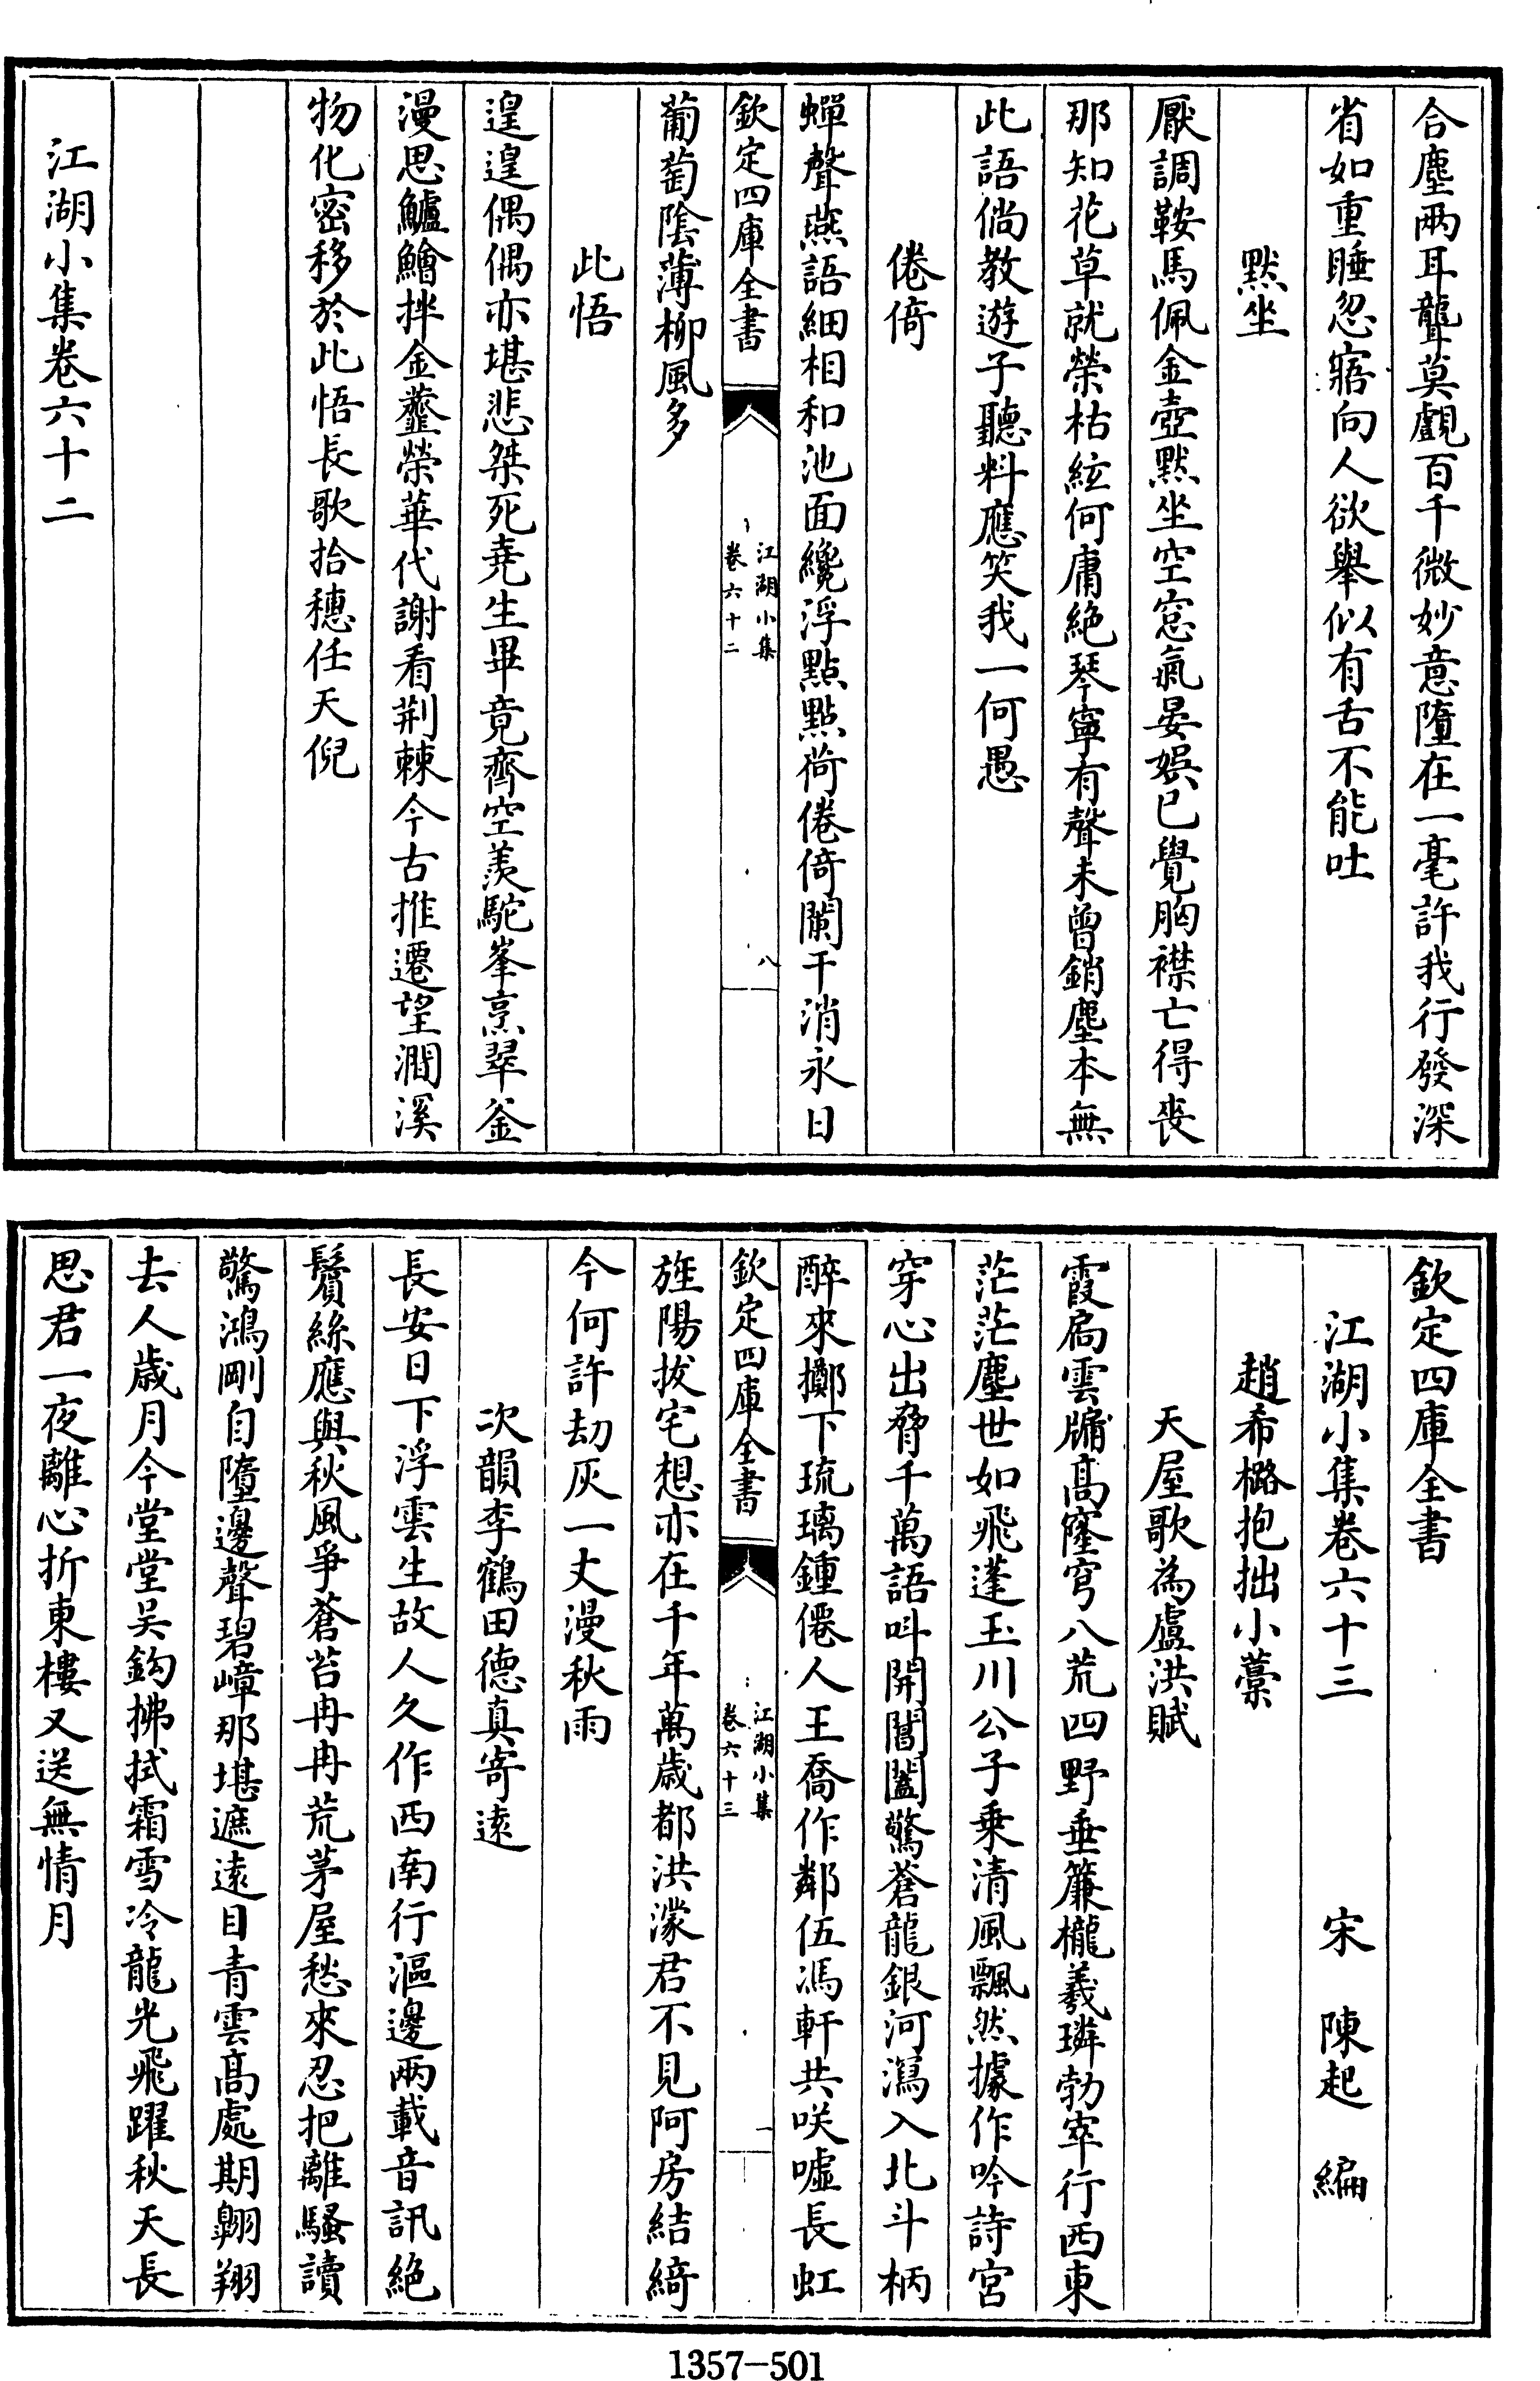 合塵兩耳聾莫覷百千微妙意墮在一毫許我行發深
省如重睡忽寤向人欲舉似有舌不能吐
默坐
厭調鞍馬佩金壺默坐空窓氣晏娯已覺胸襟亡得喪
那知花草就榮枯絃何庸絶琴寧有聲未曾銷塵本無
此語倘教遊子聽料應笑我一何愚
倦倚
蟬聲燕語細相和池面纔浮點點荷倦倚闌干消永日
欽定四庫全書
江湖小集
卷六十二
八
葡萄陰薄柳風多
此悟
遑遑偶偶亦堪悲桀死堯生畢竟齊空羨駝峯烹翠釜
漫思鱸鱠拌金虀榮華代謝看荆棘今古推遷望澗溪
物化密移於此悟長歌拾穗任天倪
江湖小集卷六十二
欽定四庫全書
江湖小集卷六十三 宋 陳起 編
趙希𣗋抱拙小藁
天屋歌為盧洪賦
霞扄雲牖髙窿穹八荒四野垂簾櫳羲璘勃窣行西東
茫茫塵世如飛蓬玉川公子乗清風飄然據作吟詩宮
穿心出脅千萬語呌開閶闔驚蒼龍銀河瀉入北斗柄
醉來擲下琉璃鍾僊人王喬作鄰伍馮軒共咲嘘長虹
欽定四庫全書
江湖小集
卷六十三
一
旌陽拔宅想亦在千年萬歲都洪濛君不見阿房結綺
今何許刼灰一丈漫秋雨
次韻李鶴田德真寄遠
長安日下浮雲生故人久作西南行漚邊兩載音訊絶
鬢絲應與秋風爭蒼苔冉冉荒茅屋愁來忍把離騷讀
驚鴻剛自墮邊聲碧嶂那堪遮遠目青雲髙處期翺翔
去人歲月今堂堂吴鈎拂拭霜雪冷龍光飛躍秋天長
思君一夜離心折東樓又送無情月
1357-501